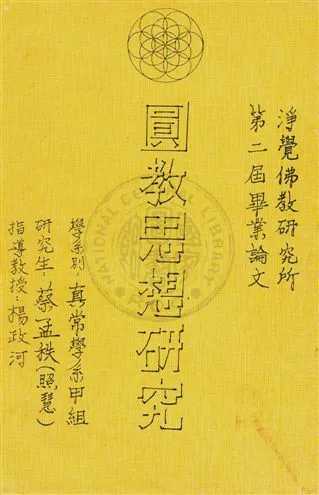 淨覺佛教研究所
第二屆畢業論文
圓教思想研究
學系別：真常學系甲組
研究生：蔡孟秩（照慧）
指導教授：楊政河
NATIONAL CENTRAL LIBRARY